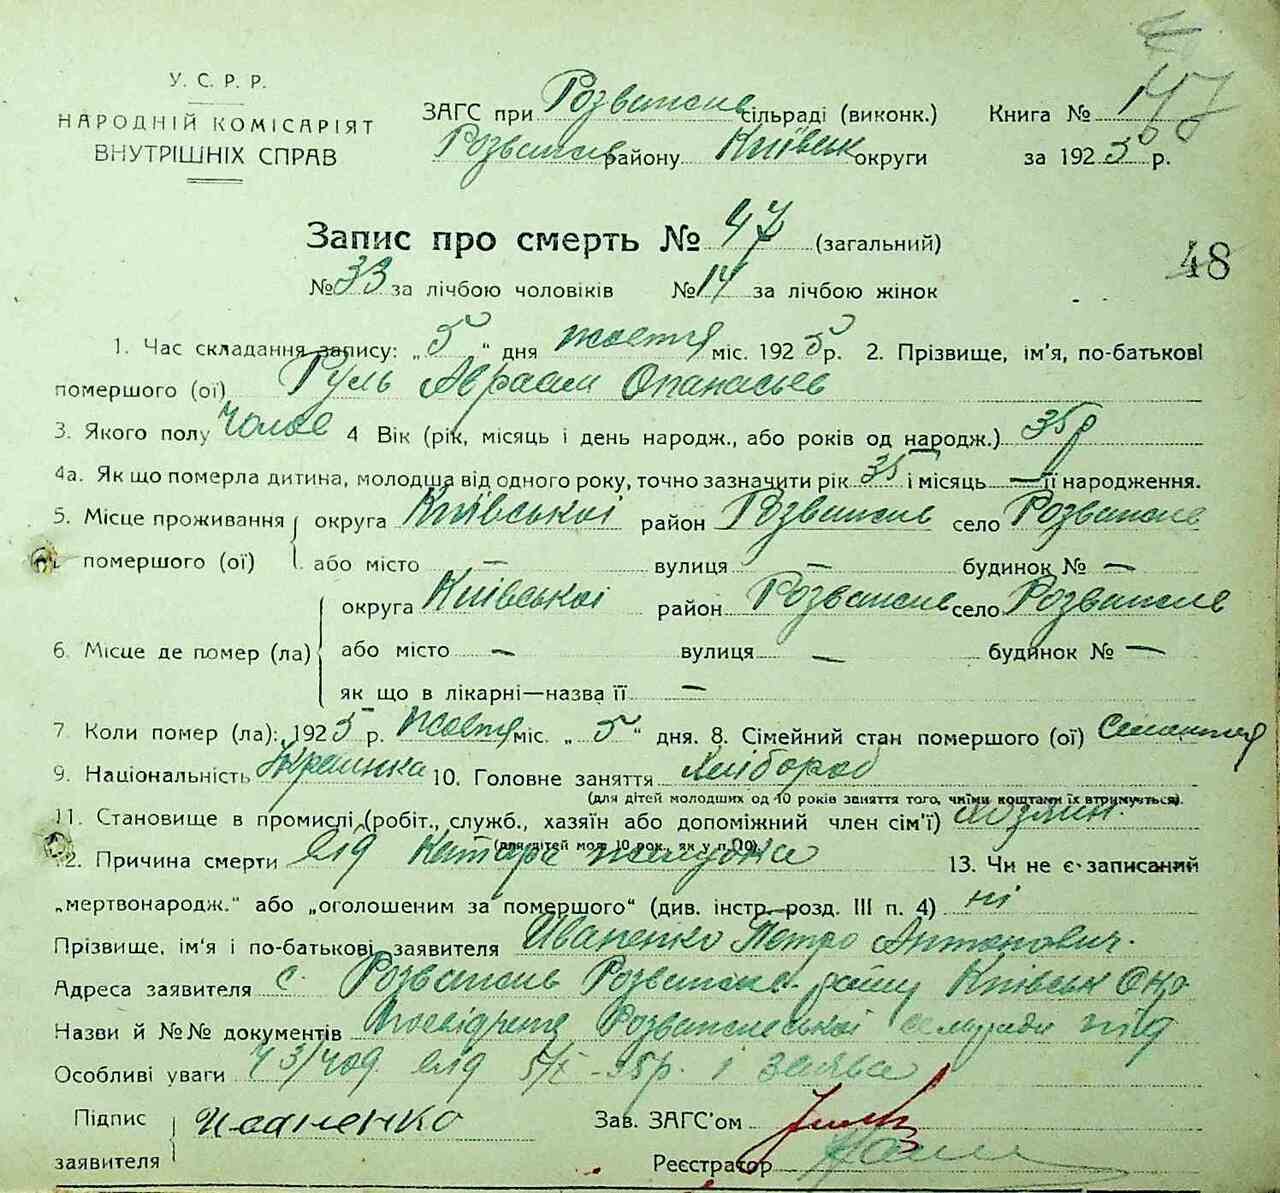 У. С. Р. Р.
НАРОДНІЙ КОМІСАРІЯТ
ВНУТРІШНІХ СПРАВ
ЗАГС при Розважив сільраді (виконк.)
Розважив району Київськ округи
Книга №
за 1925 р.
Запис про смерть № 47 (загальний)
48
№ 33 за лічбою чоловіків № 14 за лічбою жінок
1. Час складання запису: „5" дня жовтня міс. 1925 р. 2. Прізвище, ім'я, по-батькові
помершого (ої) Руль Авраам Опанасьев
3. Якого полу Чолов 4 Вік (рік, місяць і день народж., або років од народж.) 35 р
4а. Як що померла дитина, молодша від одного року, точно зазначити рік 35 і місяць — її народження.
5. Місце проживання округа Київської район Розважив село Розважив
помершого (ої) або місто — вулиця — будинок № —
округа Київської район Розважив село Розважив
6. Місце де помер (ла) або місто — вулиця — будинок № —
як що в лікарні—назва її —
7. Коли помер (ла): 1925 р. жовтня міс. „5" дня. 8. Сімейний стан помершого (ої)
9. Національність Украинка 10. Головне заняття Хлібороб
(для дітей молодших од 10 років заняття того, чиїми коштами їх втримується).
11. Становище в промислі (робіт., служб., хазяїн або допоміжний член сім'ї)
(для дітей мол. 10 рок., як у п. 10).
12. Причина смерти від Катара желудка 13. Чи не є записаний
„мертвонародж." або „оголошеним за помершого" (див. інстр. розд. III п. 4) ні
Прізвище, ім'я і по-батькові заявителя Иваненко Петро Антонович.
Адреса заявителя с. Розважив Розважив. району Київськ Окр
Назви й №№ документів Розважівської сельради під
Особливі уваги від 5/X - 25р. і заява
Підпис Иваненко Зав. ЗАГС'ом
заявителя Реєстратор